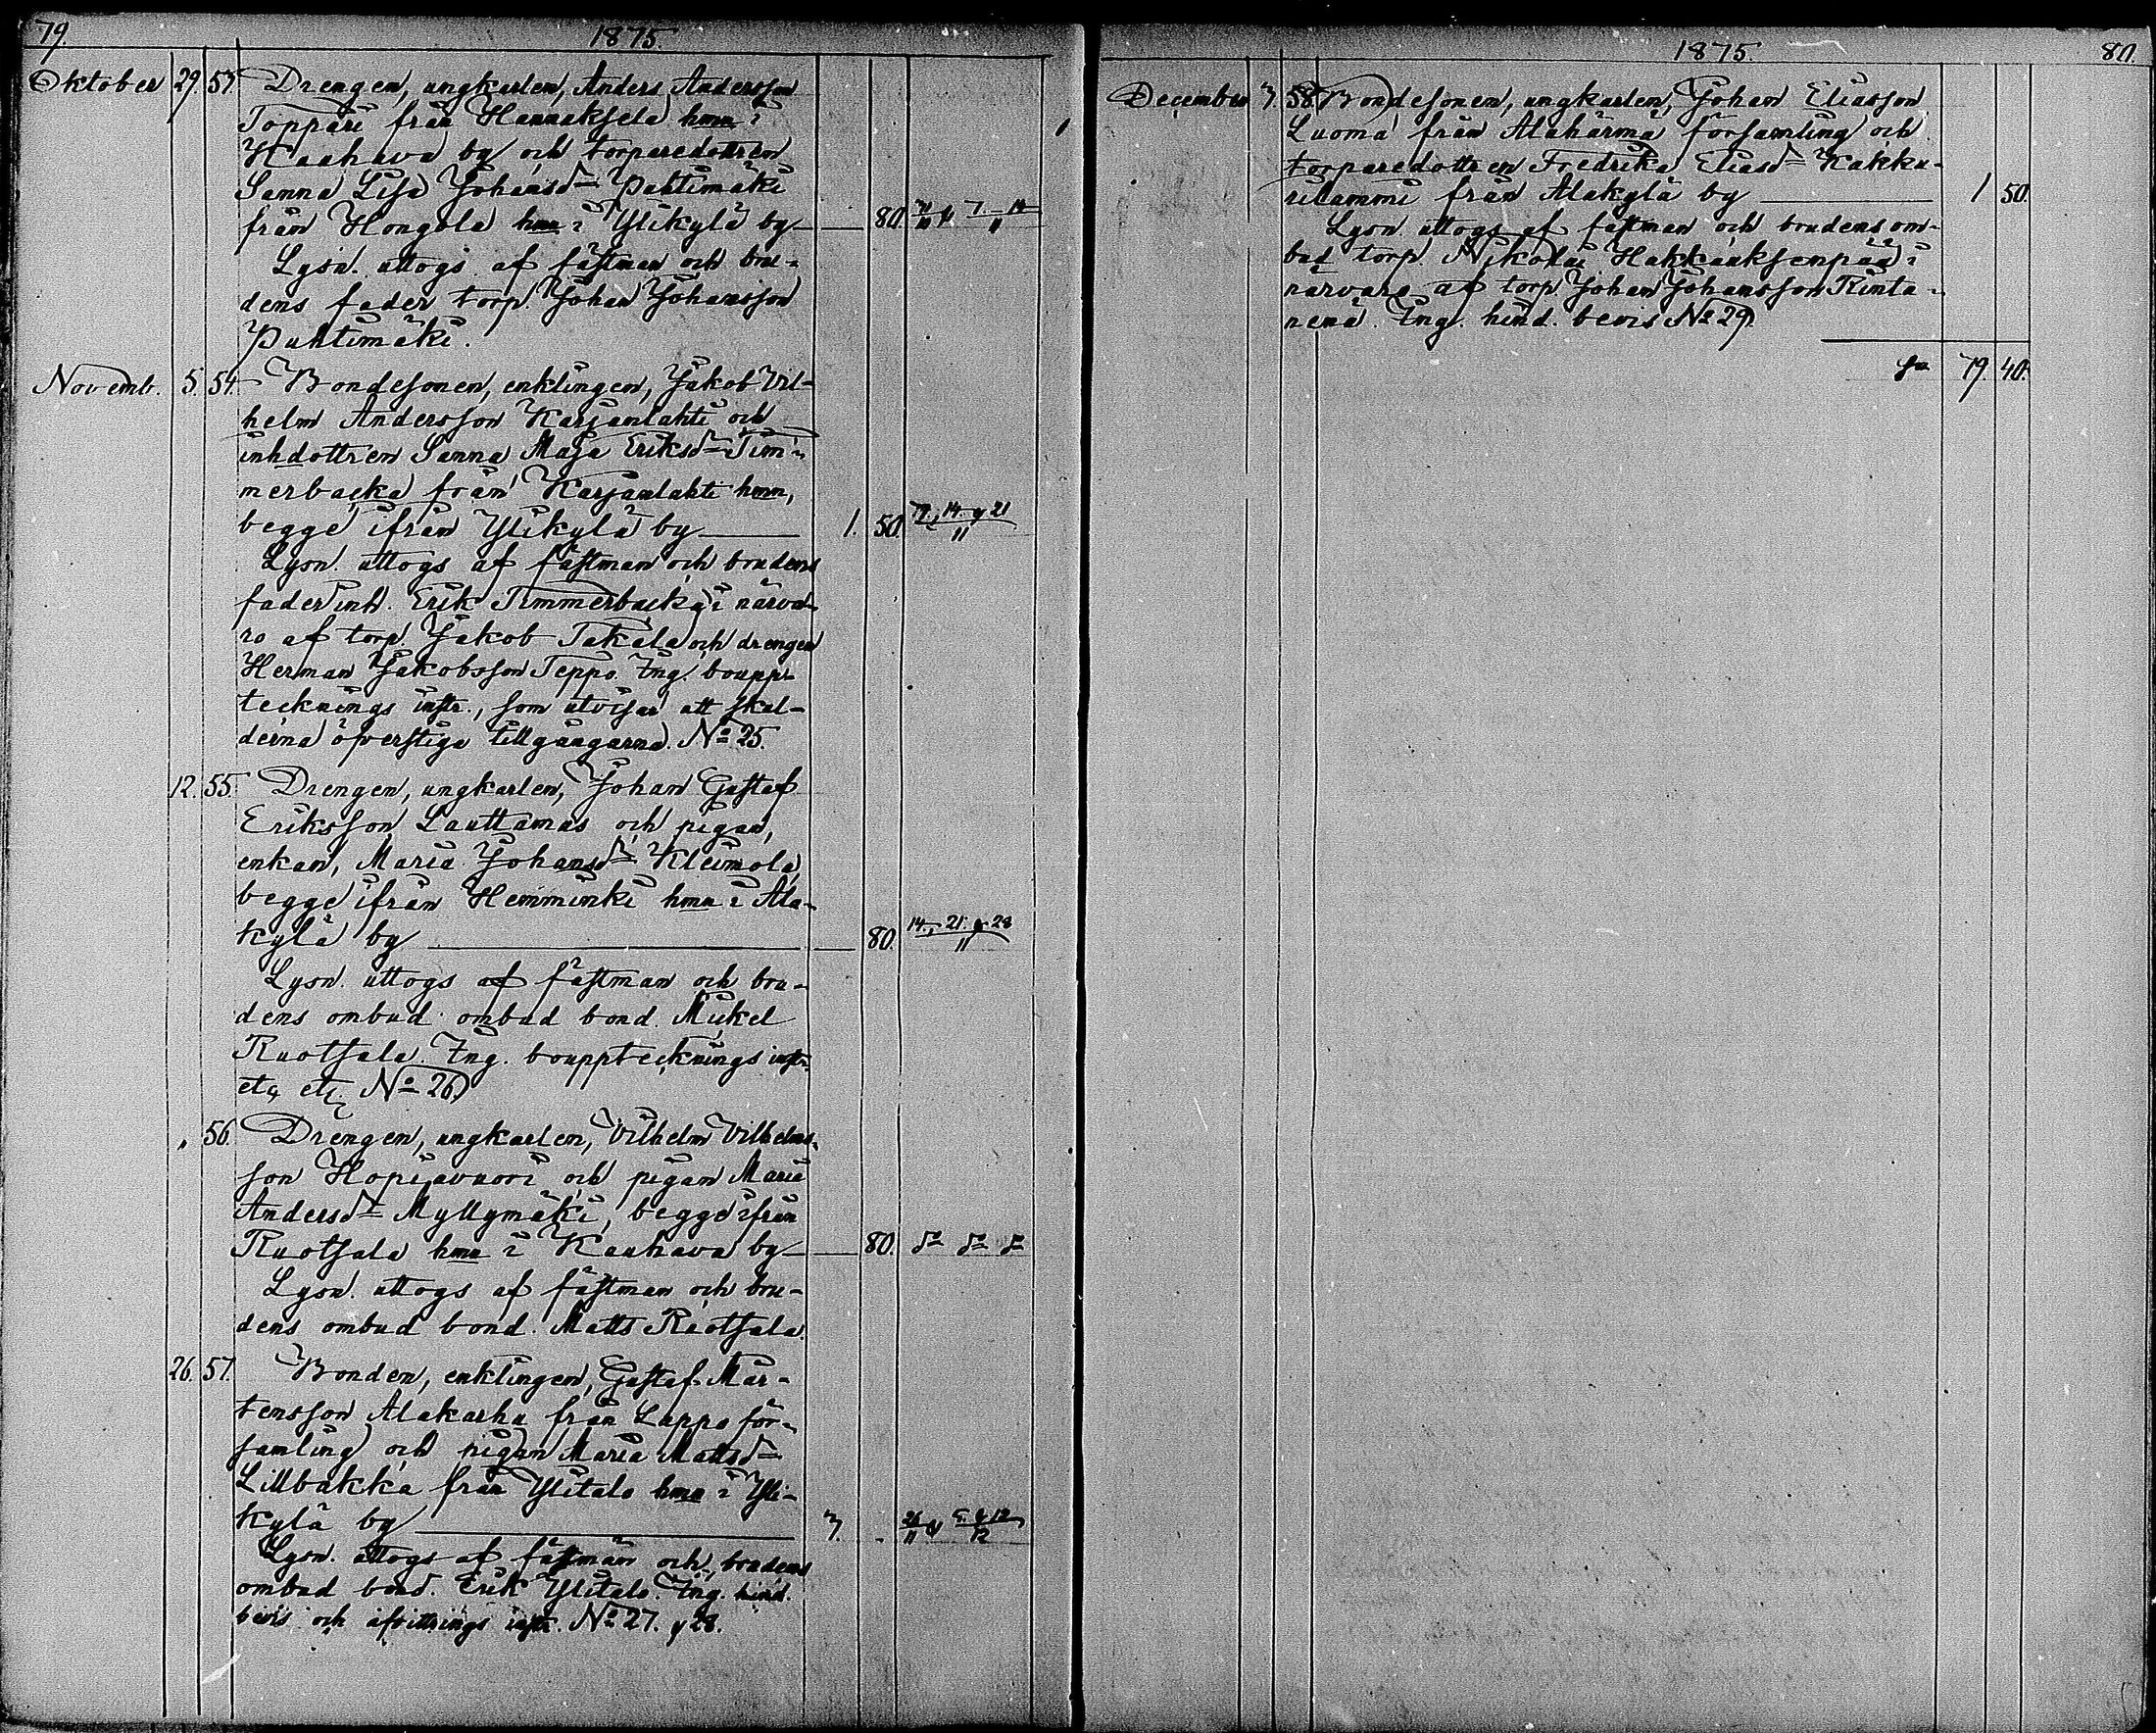 79.
1875.
Oktober 29. 53. Drengen, ungkarlen, Anders Andersson
Toppari från Hannuksela hmn i
Kauhava by och torparedottren
Sanna Lisa Johansd:r Puhtimäki
från Hongola hmn i Ylikylä by — 80.
Lysn. uttogs af fästman och bru-
dens fader torp. Johan Johansson
Puhtimäki.
Novemb. 5. 54. Bondesonen, enklingen, Jakob Vil-
helm Andersson Karjanlahti och
inhdottren Sanna Maja Eriksd:r Tim-
merbacka från Karjanlahti hmn,
begge ifrån Ylikylä by — 1. 50. 7., 14. & 21/11
Lysn. uttogs af fästman och brudens
fader inh. Erik Timmerbacka i närva-
ro af torp. Jakob Takala och drengen
Herman Jakobsson Teppo. Ing. bouppt-
ecknings instr., som utvisar att skul-
derna öfverstiga tillgångarna. No 25.
12. 55. Drengen, ungkarlen, Johan Gustaf
Eriksson Lauttamus och pigan,
enkan, Maria Johansd:r Kleimola,
begge ifrån Hemminki hmn i Ala-
kylä by — 80. 14., 21. & 28/11
Lysn. uttogs af fästman och bru-
dens ombud ombud bond. Mickel
Ruotsala. Ing. bouppteckningsinstr.
etc etc No 26.
" 56. Drengen, ungkarlen, Vilhelm Vilhelms-
son Hopiavuori och pigan Maria
Andersd:r Myllymäki, begge ifrån
Ruotsala hmn i Kauhava by — 80. d:o d:o d:o
Lysn. uttogs af fästman och bru-
dens ombud bond. Matts Ruotsala.
26. 57. Bonden, enklingen, Gustaf Mår-
tensson Alakarhu från Lappo för-
samling och pigan Maria Mattsd:r
Lillbakka från Ylitalo hmn i Yli-
kylä by — 3. - 28/11 & 5. & 12/12
Lysn. uttogs af fästman och brudens
ombud bond. Erik Ylitalo. Ing. hind.
bevis och afvittrings instr. No 27. & 28.
1875.
80.
December 3. 58. Bondesonen, ungkarlen, Johan Eliasson
Luoma från Alahärmä församling och
torparedottren Fredrika Eliasd:r Kakku-
rilammi från Alakylä by — 1 50.
Lysn. uttogs af fästman och brudens om-
bud torp. Nikolai Hakkauksenpää i
närvaro af torp. Johan Johansson Rinta-
nenä. Ing. hind. bevis No 29.
S:a 79. 40.